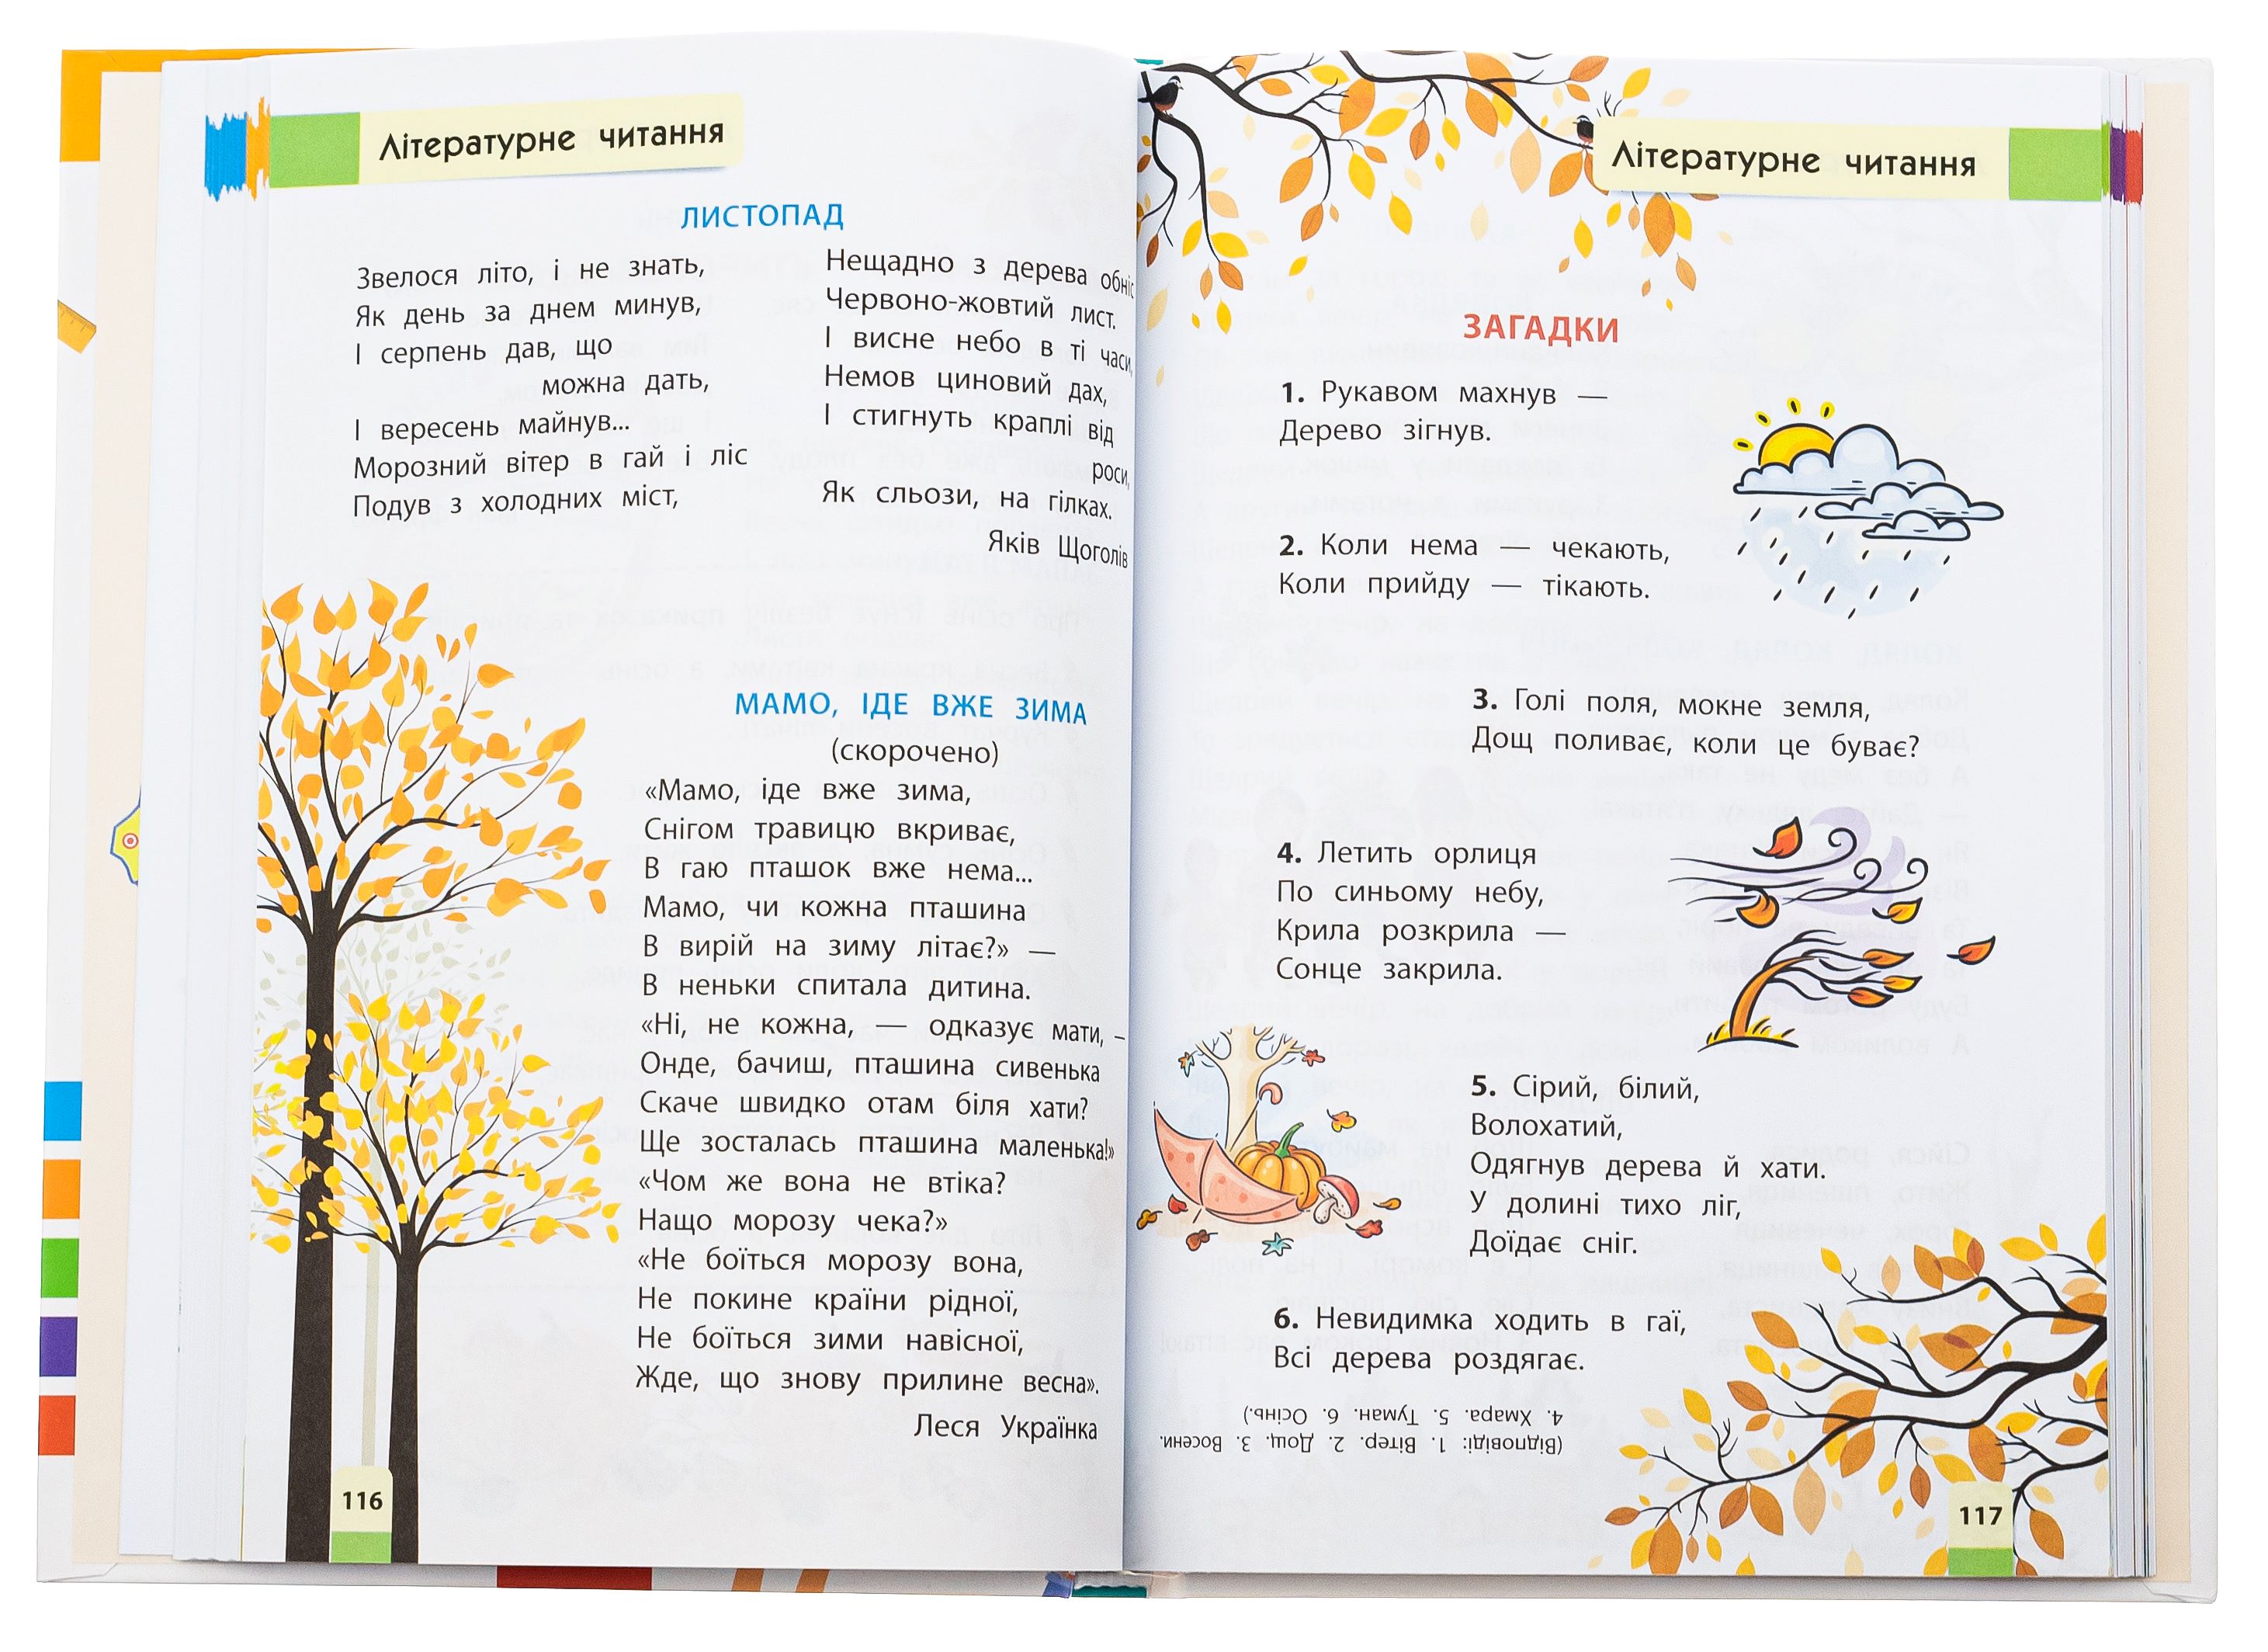 Літературне читання
ЛИСТОПАД
Звелося літо, і не знать,
Як день за днем минув,
І серпень дав, що
можна дать,
І вересень майнув...
Морозний вітер в гай і ліс
Подув з холодних міст,
Нещадно з дерева обніс
Червоно-жовтий лист.
І висне небо в ті часи,
Немов циновий дах,
І стигнуть краплі від
роси,
Як сльози, на гілках.
Яків Щоголів
МАМО, ІДЕ ВЖЕ ЗИМА
(скорочено)
«Мамо, іде вже зима,
Снігом травицю вкриває,
В гаю пташок вже нема...
Мамо, чи кожна пташина
В вирій на зиму літає?» —
В неньки спитала дитина.
«Ні, не кожна, — одказує мати, –
Онде, бачиш, пташина сивенька
Скаче швидко отам біля хати?
Ще зосталась пташина маленька!»
«Чом же вона не втіка?
Нащо морозу чека?»
«Не боїться морозу вона,
Не покине країни рідної,
Не боїться зими навісної,
Жде, що знову прилине весна».
Леся Українка
116
Літературне читання
ЗАГАДКИ
1. Рукавом махнув —
Дерево зігнув.
2. Коли нема — чекають,
Коли прийду — тікають.
3. Голі поля, мокне земля,
Дощ поливає, коли це буває?
4. Летить орлиця
По синьому небу,
Крила розкрила —
Сонце закрила.
5. Сірий, білий,
Волохатий,
Одягнув дерева й хати.
У долині тихо ліг,
Доїдає сніг.
6. Невидимка ходить в гаї,
Всі дерева роздягає.
(Відповіді: 1. Вітер. 2. Дощ. 3. Восени.
4. Хмара. 5. Туман. 6. Осінь.)
117